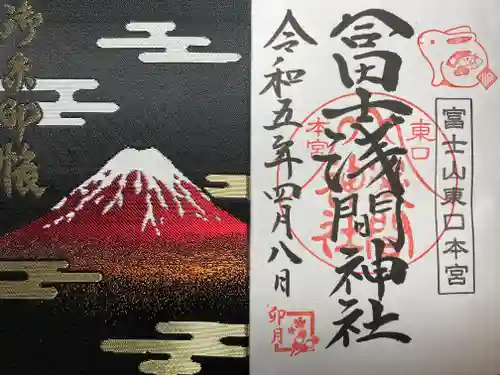 御朱印帳
富士山東口本宮
冨士浅間神社
東口
本宮
令和五年四月八日
卯月